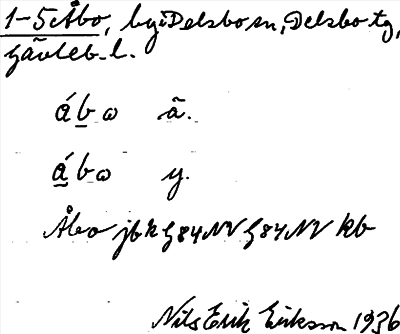 1-5 Åbo, by i Delsbo sn, Delsbo tg,
Gävleb. l.
ábω ä.
ábω y.
Åbo jbk G84NV G84NV kb
Nils Erik Eriksson 1936